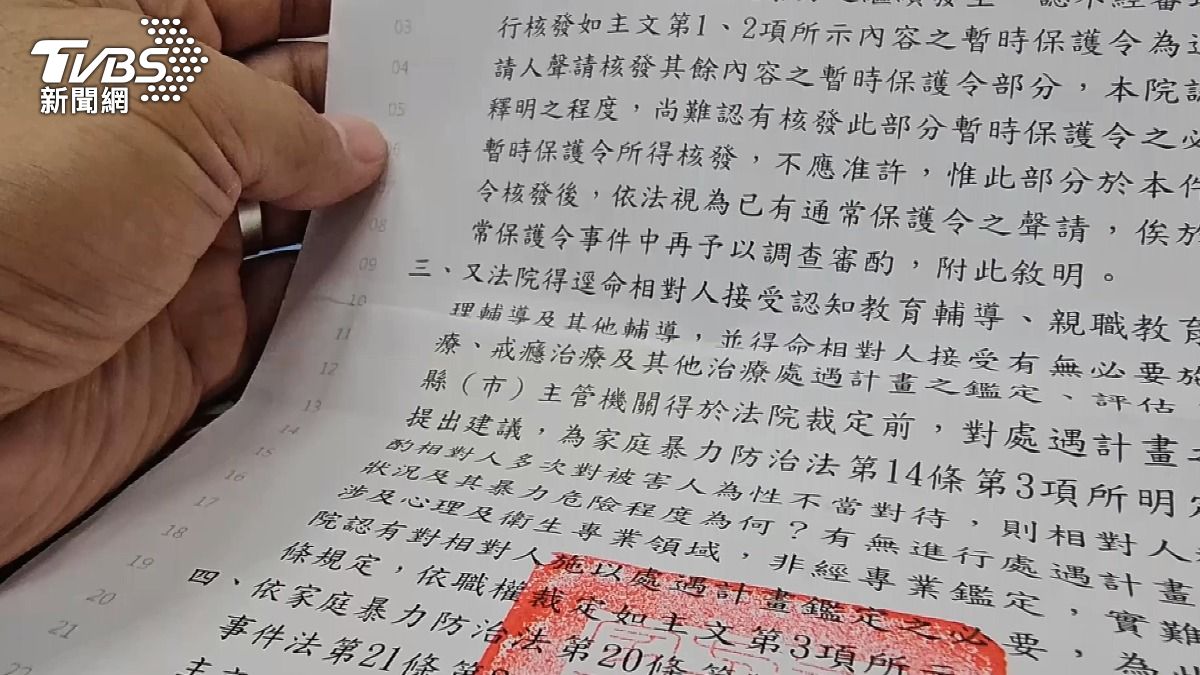 TVBS
新聞網
03 行核發如主文第1、2項所示內容之暫時保護令為
04 請人聲請核發其餘內容之暫時保護令部分，本院
05 釋明之程度，尚難認有核發此部分暫時保護令之
暫時保護令所得核發，不應准許，惟此部分於本件
令核發後，依法視為已有通常保護令之聲請，俟於
08 常保護令事件中再予以調查審酌，附此敘明。
09 三、又法院得逕命相對人接受認知教育輔導、親職教育
10 理輔導及其他輔導，並得命相對人接受有無必要施
11 療、戒癮治療及其他治療處遇計畫之鑑定、評估
12 縣（市）主管機關得於法院裁定前，對處遇計畫
13 提出建議，為家庭暴力防治法第14條第3項所明
14 酌相對人多次對被害人為性不當對待，則相對人
15 狀況及其暴力危險程度為何？有無進行處遇計畫
16 涉及心理及衛生專業領域，非經專業鑑定，實難
17 院認有對相對人施以處遇計畫鑑定之必要，為此
18 條規定，依職權裁定如主文第3項所示
19 四、依家庭暴力防治法第20條第
20 事件法第21條第
21 主文
22